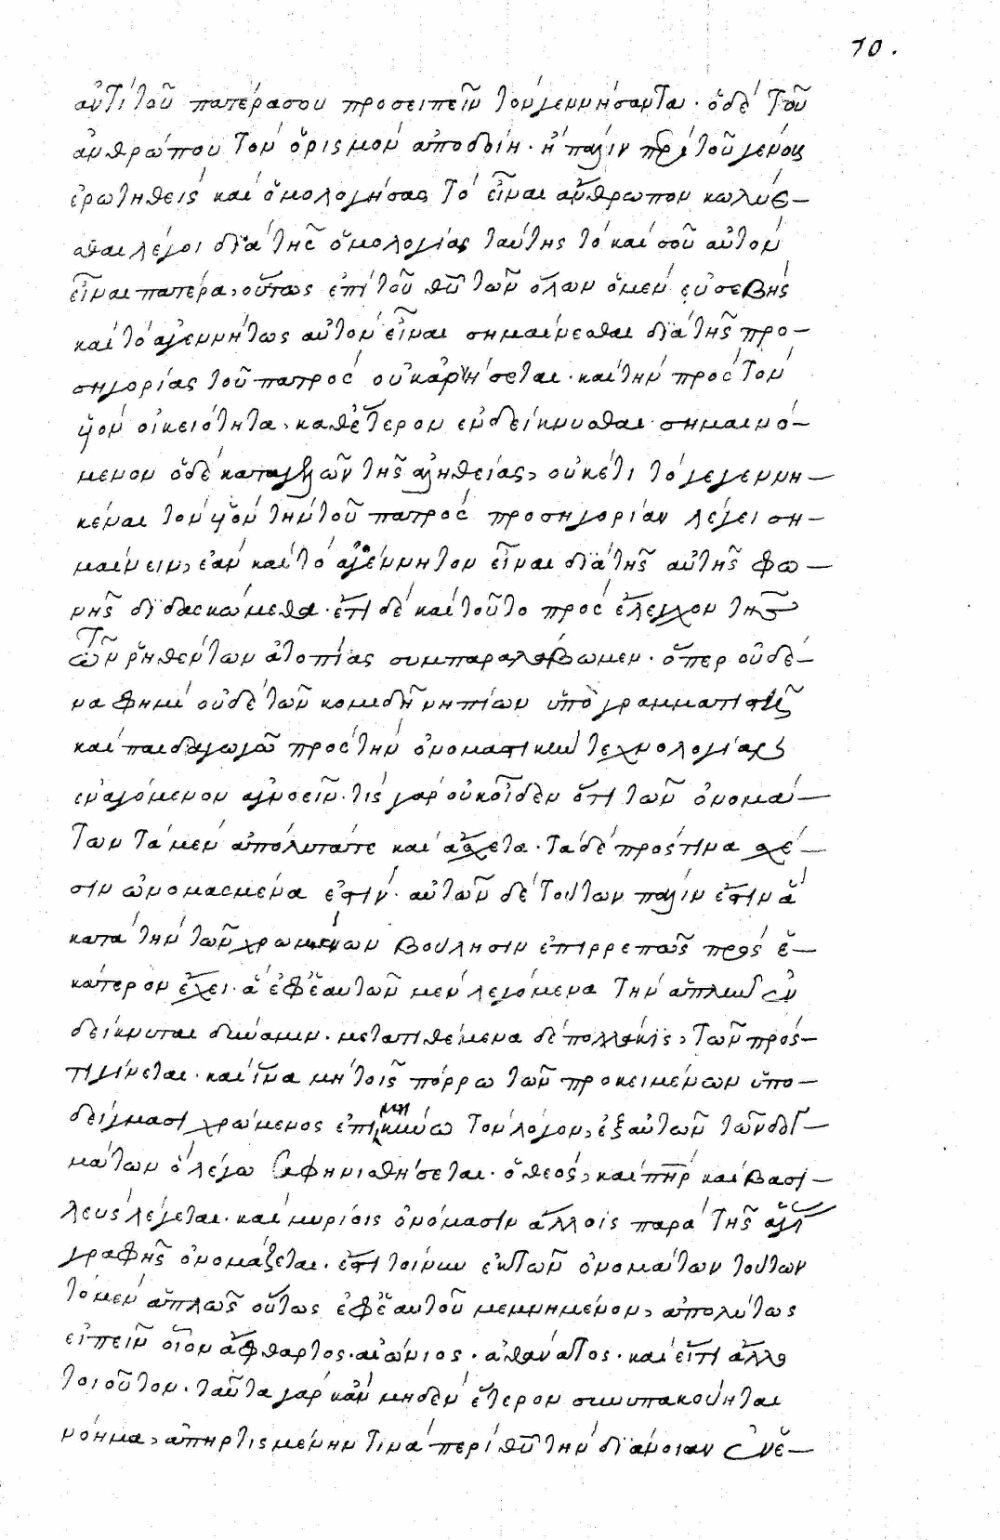 10.
ἀντὶ τοῦ πατέρα σου προσειπεῖν τὸν γεννήσαντα· ὁ δὲ τοῦ
ἀνθρώπου τὸν ὁρισμὸν ἀποδοίη· ἢ πάλιν περὶ τοῦ γένους
ἐρωτηθεὶς καὶ ὁμολογήσας τὸ εἶναι ἄνθρωπον κωλύε–
σθαι λέγοι διὰ τῆς ὁμολογίας ταύτης τὸ καὶ σοῦ αὐτὸν
εἶναι πατέρα, οὕτως ἐπὶ τοῦ θῦ τῶν ὅλων ὁ μὲν εὐσεβὴς
καὶ τὸ ἀγεννήτως αὐτὸν εἶναι σημαίνεσθαι διὰ τῆς προ–
σηγορίας τοῦ πατρὸς οὐκ ἀρνήσεται· καὶ τὴν πρὸς τὸν
ὑὸν οἰκειότητα, καθ' ἕτερον ἐνδείκνυσθαι σημαινό–
μενον ὁ δὲ καταψευδῶν τῆς ἀληθείας, οὐκέτι τὸ γεγεννη–
κέναι τὸν ὑὸν τὴν τοῦ πατρὸς προσηγορίαν λέγει ση–
μαίνειν, ἐὰν καὶ τὸ ἀγέννητον εἶναι διὰ τῆς αὐτῆς φω–
νῆς διδασκώμεθα· ἔτι δὲ καὶ τοῦτο πρὸς ἔλεγχον τῆς
τῶν ῥηθέντων ἀτοπίας συμπαραλάβωμεν· ὅπερ οὐδέ–
να φημὶ οὐδὲ τῶν κομιδῆ νηπίων ὑπὸ γραμματιστῆ
καὶ παιδαγωγῶ πρὸς τὴν ὀνοματικὴν τεχνολογίας
ἐναγόμενον ἀγνοεῖν· τίς γὰρ οὐκ οἶδεν ὅτι τῶν ὀνομά–
των τὰ μὲν ἀπόλυτά τε καὶ ἄσχετα· τὰ δὲ πρός τινα σχέ–
σιν ὠνομασμένα ἐστίν· αὐτῶν δὲ τούτων πάλιν ἔστιν ἃ
κατὰ τὴν τῶν χρωμένων βούλησιν ἐπιρρεπῶς πρὸς ἑ–
κάτερον ἔχει· ἃ ἐφ' ἑαυτῶν μὲν λεγόμενα τὴν ἁπλῆν ἐν
δείκνυται δύναμιν· μετατιθέμενα δὲ πολλάκις, τῶν πρός–
τι γίνεται· καὶ ἵνα μὴ τοῖς πόρρω τῶν προκειμένων ὑπο–
δείγμασι χρώμενος ἐπιμηκύνω τὸν λόγον, ἐξ αὐτῶν τῶν δογ–
μάτων ὃ λέγω σαφηνισθήσεται· ὁ θεὸς, καὶ πὴρ καὶ βασι–
λεὺς λέγεται· καὶ μυρίοις ὀνόμασιν ἄλλοις παρὰ τῆς ἁγί
γραφῆς ὀνομάζεται· ἔστι τοίνυν ἐκ τῶν ὀνομάτων τούτων
τὸ μὲν ἁπλῶς οὕτως ἐφ' ἑαυτοῦ μεμνημένον, ἀπολύτως
εἰπεῖν οἷον ἄφθαρτος· αἰώνιος· ἀθάνατος· καὶ εἴ τι ἄλλο
τοιοῦτον· ταῦτα γὰρ κἂν μηδὲν ἕτερον συνυπακούηται
νόημα, ἀπηρτισμένην τινὰ περὶ θῦ τὴν διάνοιαν ἐν ἑ–